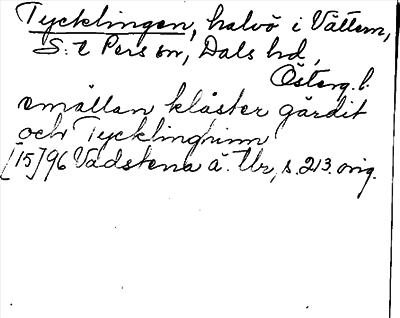 Tycklingen, halvö i Vättern,
S:t Pers sn, Dals hd,
Österg. l.
emällan klåster gärdit
och Tycklingzinn
[15]96 Vadstena ä. Ur, s. 213. orig.